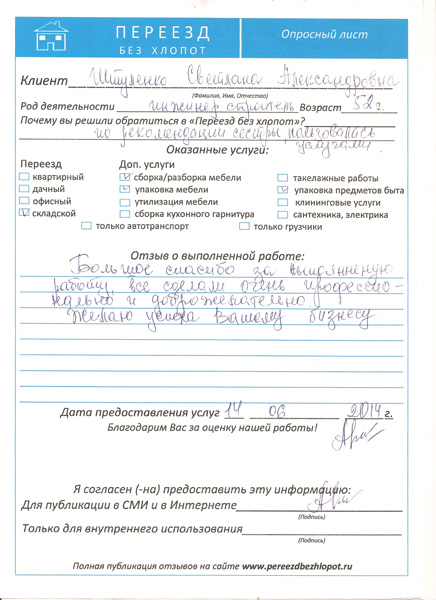 ПЕРЕЕЗД
БЕЗ ХЛОПОТ
Опросный лист
Клиент Штуленко Светлана Александровна
(Фамилия, Имя, Отчество)
Род деятельности инженер строитель Возраст 52 г.
Почему вы решили обратиться в «Переезд без хлопот»?
по рекомендации сестры, пользовалась
услугами.
Оказанные услуги:
Переезд Доп. услуги
квартирный сборка/разборка мебели такелажные работы
дачный упаковка мебели упаковка предметов быта
офисный утилизация мебели клининговые услуги
складской сборка кухонного гарнитура сантехника, электрика
только автотранспорт только грузчики
Отзыв о выполненной работе:
Большое спасибо за выполненную
работу, все сделали очень профессио-
нально и доброжелательно.
Желаю успеха Вашему бизнесу
Дата предоставления услуг 14 06 2014 г.
Благодарим Вас за оценку нашей работы!
Я согласен (-на) предоставить эту информацию:
Для публикации в СМИ и в Интернете
(Подпись)
Только для внутреннего использования
(Подпись)
Полная публикация отзывов на сайте www.pereezdbezhlopot.ru